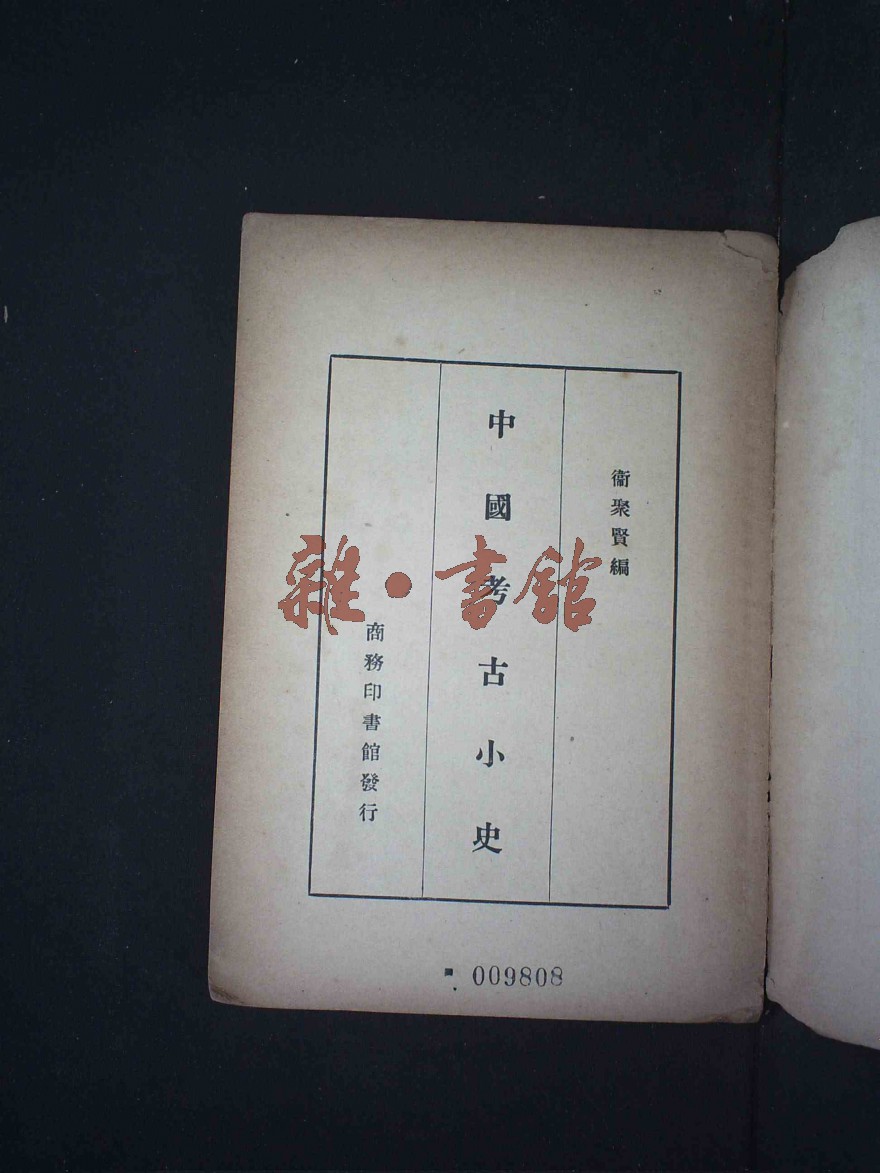 衞聚賢編
中國考古小史
商務印書館發行
雜·書館
009808